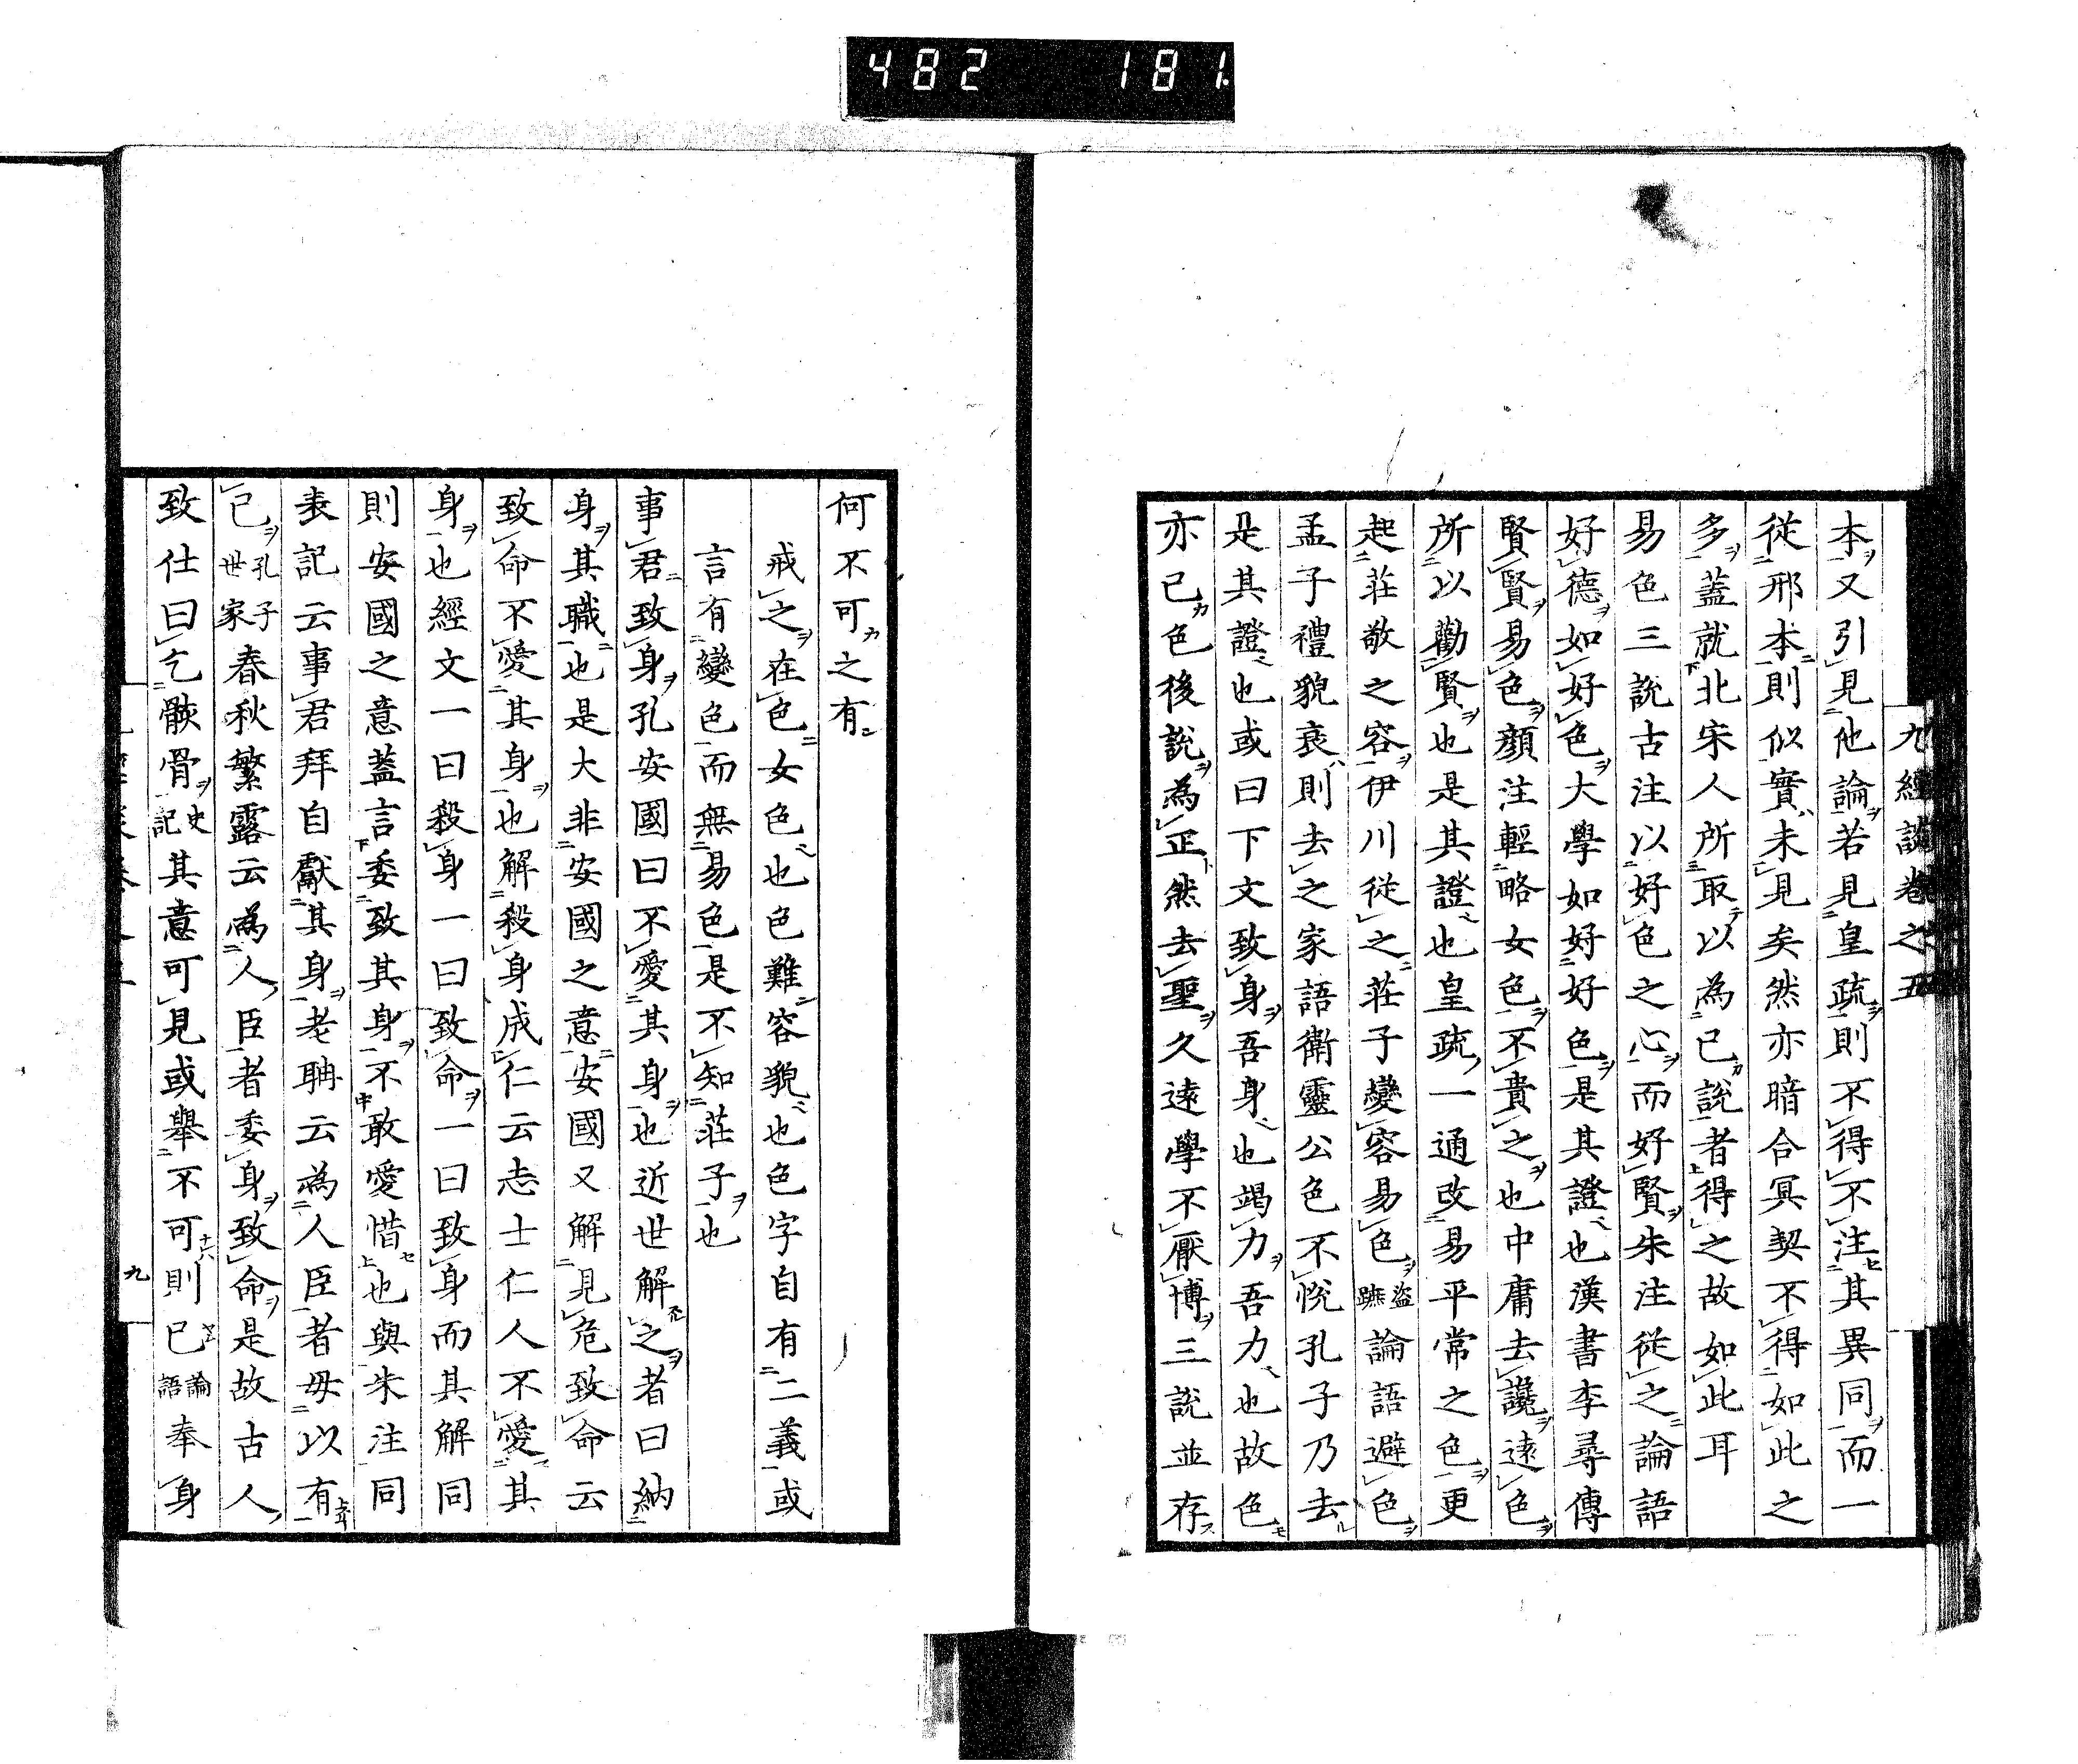 482 181
九經談卷之五
本ヲ又引見他論ヲ若見皇疏ヲ則不得不注セ其異同ヲ而一
從邢本則似實ハ未見矣然亦暗合冥契不得如此之
多ヲ蓋就北宋人所取テ以為己カ說者得之故如此耳
易色三說古注以好色之心ヲ而好賢ヲ朱注從之論語
好德ヲ如好色ヲ大學如好好色ヲ是其證也漢書李尋傳
賢賢ヲ易色ヲ顏注輕略女色ヲ不貴之ヲ也中庸去讒ヲ遠色ヲ
所以勸賢ヲ也是其證也皇疏ノ一通改易平常之色ヲ更
起莊敬之容ヲ伊川從之莊子變容易色ヲ盜蹠論語避色ヲ
孟子禮貌衰ハ則去之家語衛靈公色不悅孔子乃去ル
是其證也或曰下文致身ヲ吾身也竭力ヲ吾力也故色モ
亦己カ色後說ヲ為正ト然去聖ヲ久遠學不厭博ヲ三說並存ス
何不可カ之有
戒之ヲ在色女色也色難容貌也色字自有二義或
言有變色而無易色是不知莊子ヲ也
事君致身ヲ孔安國曰不愛其身ヲ也近世解之ヲ者曰納
身ヲ其職也是大非安國之意安國又解見危致命云
致命不愛其身ヲ也解殺身成仁云志士仁人不愛其
身ヲ也經文一曰殺身一曰致命ヲ一曰致身而其解同
則安國之意蓋言委致其身ヲ不敢愛惜セ也與朱注同
表記云事君拜自獻其身ヲ老聃云為人臣者毋以有
己ヲ孔子世家春秋繁露云為人ノ臣者委身ヲ致命ヲ是故古人ノ
致仕曰乞骸骨ヲ史記其意可見或舉不可則已論語奉身
九